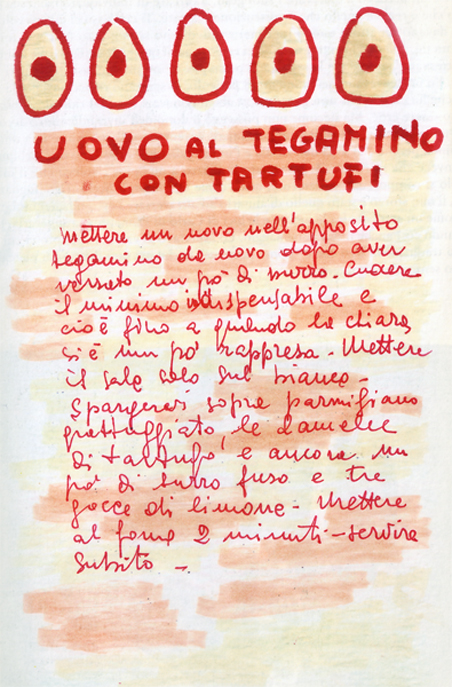 UOVO AL TEGAMINO
CON TARTUFI
Mettere un uovo nell'apposito
tegamino da uovo dopo aver
versato un po' di burro - Cuocere
il minimo indispensabile e
cioè fino a quando la chiara
si è un po' rappresa - Mettere
il sale solo sul bianco -
Spargervi sopra parmigiano
grattuggiato, le lamelle
di tartufo, e ancora un
po' di burro fuso e tre
gocce di limone - Mettere
al forno 2 minuti - servire
subito -